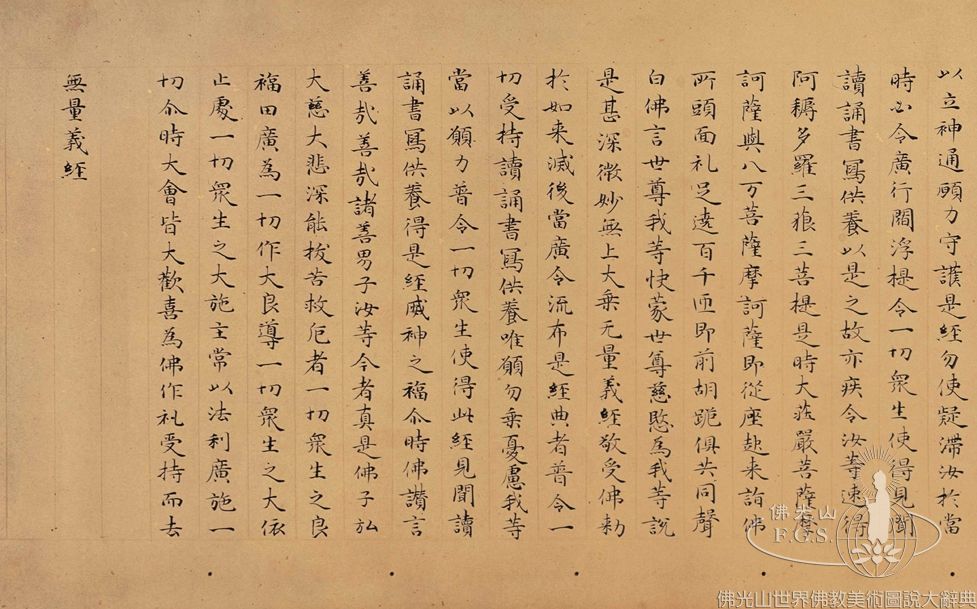 以立神通願力守護是經勿使疑滯汝於當
時必令廣行閻浮提令一切衆生使得見聞
讀誦書寫供養以是之故亦疾令汝等速得
阿耨多羅三狼三菩提是時大莊嚴菩薩摩
訶薩與八万菩薩摩訶薩即從座起来詣佛
所頭面礼足遶百千匝即前胡跪俱共同聲
白佛言世尊我等快蒙世尊慈愍為我等說
是甚深微妙無上大乘无量義經敬受佛勅
於如来滅後當廣令流布是經典者普令一
切受持讀誦書寫供養唯願勿垂憂慮我等
當以願力普令一切衆生使得此經見聞讀
誦書寫供養得是經威神之福尒時佛讚言
善哉善哉諸善男子汝等令者真是佛子弘
大慈大悲深能拔苦救厄者一切衆生之良
福田廣為一切作大良導一切衆生之大依
止處一切衆生之大施主常以法利廣施一
切尒時大會皆大歡喜為佛作礼受持而去
無量義經
佛光山
F.G.S.
佛光山世界佛教美術圖說大辭典